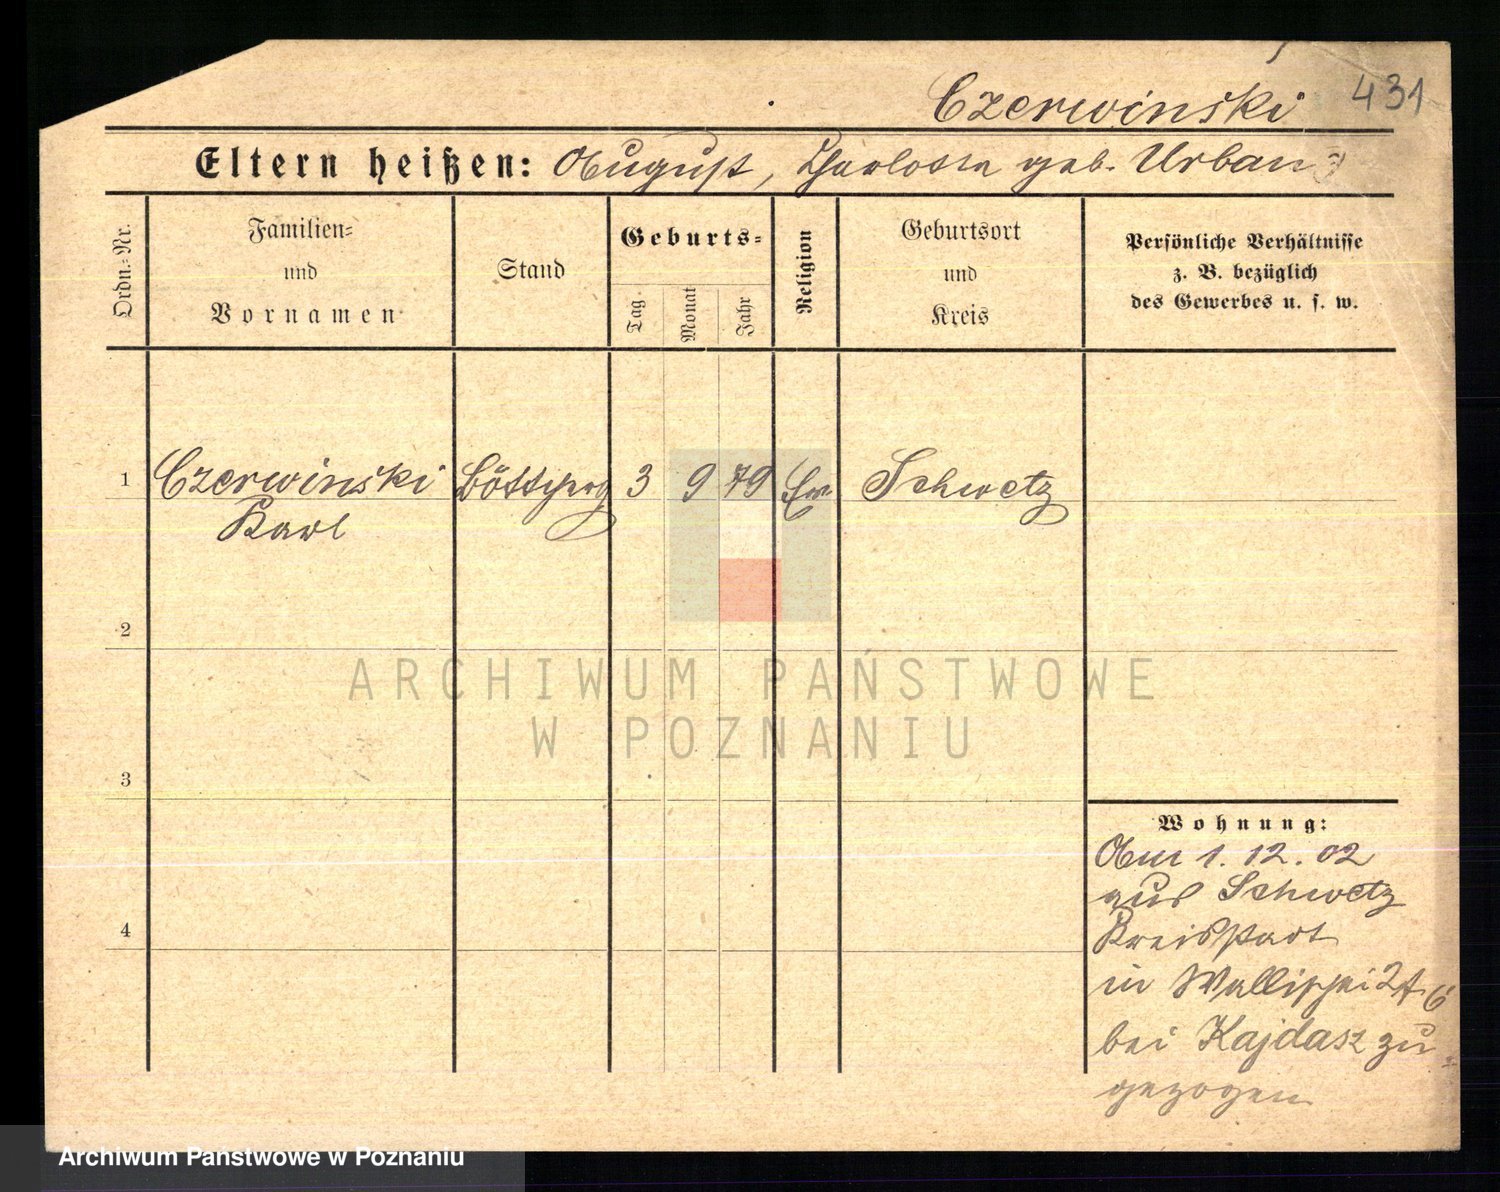 Czerwinski 431
Eltern heißen: August, Charlotte geb. Urban
Ordn.-Nr.
Familien-
und
Vornamen
Stand
Geburts-
Tag
Monat
Jahr
Religion
Geburtsort
und
Kreis
Persönliche Verhältnisse
z. B. bezüglich
des Gewerbes u. s. w.
1 Czerwinski Böttcherg 3 9 79 Ev Schwetz
Karl
2
3
4
Wohnung:
Am 1. 12. 02
aus Schwetz
Kreisstadt
in Wallischei
bei Kajdasz zu
gezogen
ARCHIWUM PAŃSTWOWE
W POZNANIU
Archiwum Państwowe w Poznaniu